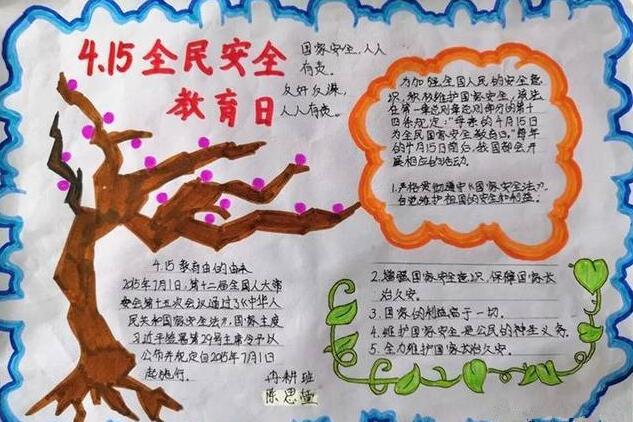 4.15全民安全
教育日
国家安全,人人
有责。
人人有责。
为加强全国人民的安全意
识,积极维护国家安全,该法
在第一章总则章总则部分的第十
四条规定:“每年的4月15日
为全民国家安全教育日。”每年
的4月15日前后,我国都会开
展相应的活动。
1.严格贯彻遵守《国家安全法》,
自觉维护祖国的安全和利益。
4.15教育由的由来
2015年7月1日,第十二届全国人大常
委会第十五次会议通过了《中华人
民共和国国家安全法》,国家主度
习近平签署第29号主席令予以
公布并规定自2015年7月1日
起施行。
2.增强国家安全意识,保障国家长
治久安。
3.国家的利益高于一切。
4.维护国家安全,是公民的神圣义务。
5.全力维护国家长治久安。
冉耕班
陈思